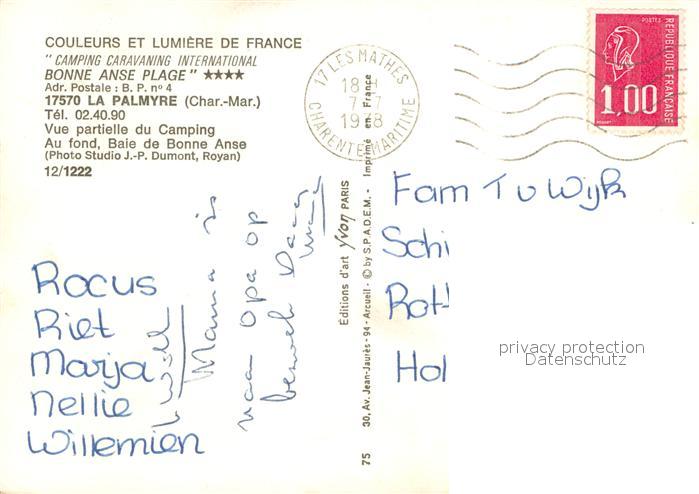 COULEURS ET LUMIÈRE DE FRANCE
"CAMPING CARAVANING INTERNATIONAL
BONNE ANSE PLAGE" ★★★★
Adr. Postale : B. P. nº 4
17570 LA PALMYRE (Char.-Mar.)
Tél. 02.40.90
Vue partielle du Camping
Au fond, Baie de Bonne Anse
(Photo Studio J.-P. Dumont, Royan)
12/1222
17 LES MATHES
18 H
7-7
1978
CHARENTE-MARITIME
POSTES
REPUBLIQUE FRANÇAISE
1,00
Rocus
Riet
Marja
Nellie
Willemien
Mama is
naar opa op
bezoek
75
30, Av. Jean-Jaurès - 94 - Arcueil - © by S.P.A.D.E.M. - Imprimé en France
Editions d'art yvon PARIS
Fam T v Wijk
Schi
Rot
Hol
privacy protection
Datenschutz